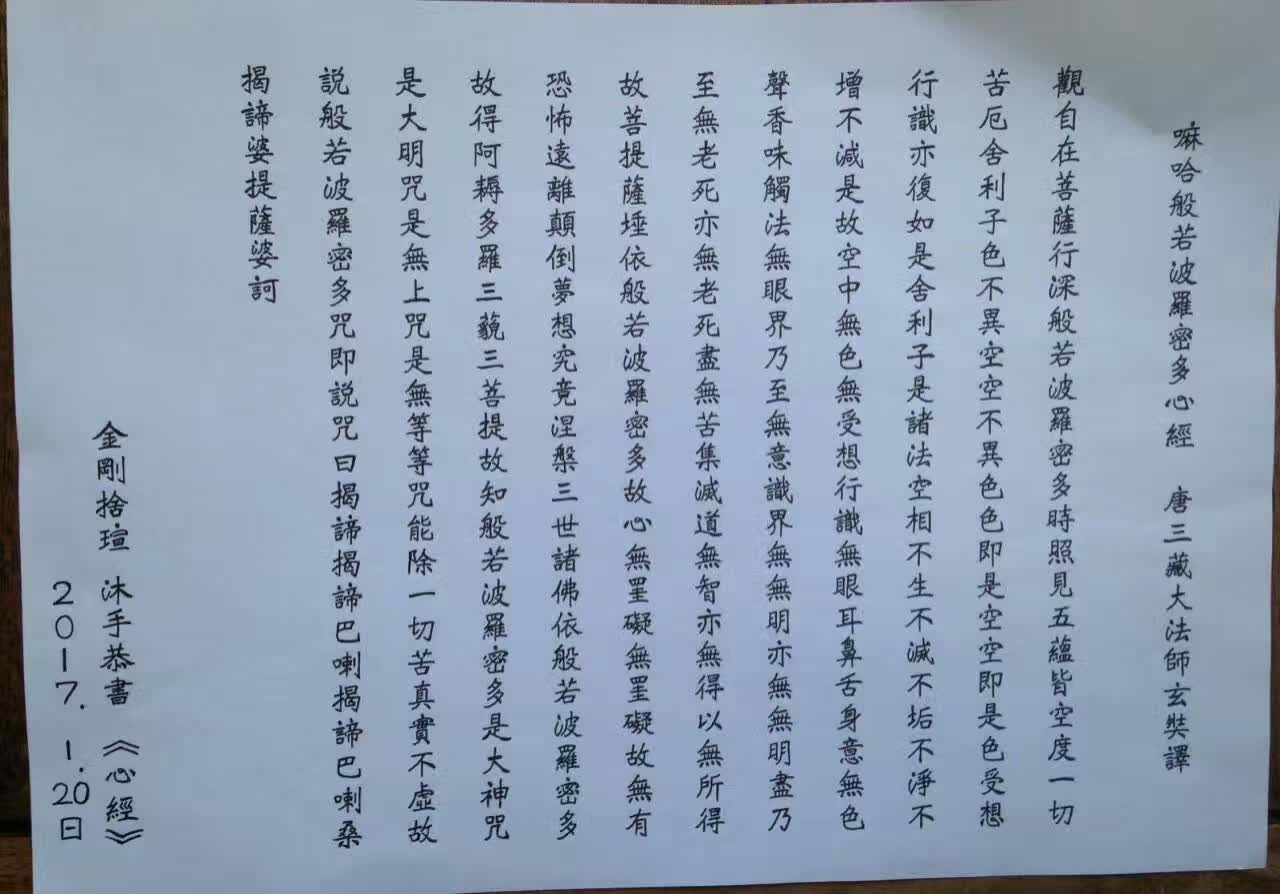 嘛哈般若波羅密多心經　唐三藏大法師玄奘譯
觀自在菩薩行深般若波羅密多時照見五蘊皆空度一切
苦厄舍利子色不異空空不異色色即是空空即是色受想
行識亦復如是舍利子是諸法空相不生不滅不垢不淨不
增不減是故空中無色無受想行識無眼耳鼻舌身意無色
聲香味觸法無眼界乃至無意識界無無明亦無無明盡乃
至無老死亦無老死盡無苦集滅道無智亦無得以無所得
故菩提薩埵依般若波羅密多故心無罣礙無罣礙故無有
恐怖遠離顛倒夢想究竟涅槃三世諸佛依般若波羅密多
故得阿耨多羅三藐三菩提故知般若波羅密多是大神咒
是大明咒是無上咒是無等等咒能除一切苦真實不虛故
説般若波羅密多咒即説咒曰揭諦揭諦巴喇揭諦巴喇桑
揭諦婆提薩婆訶
金剛捨瑄 沐手恭書《心經》
2017.1.20日